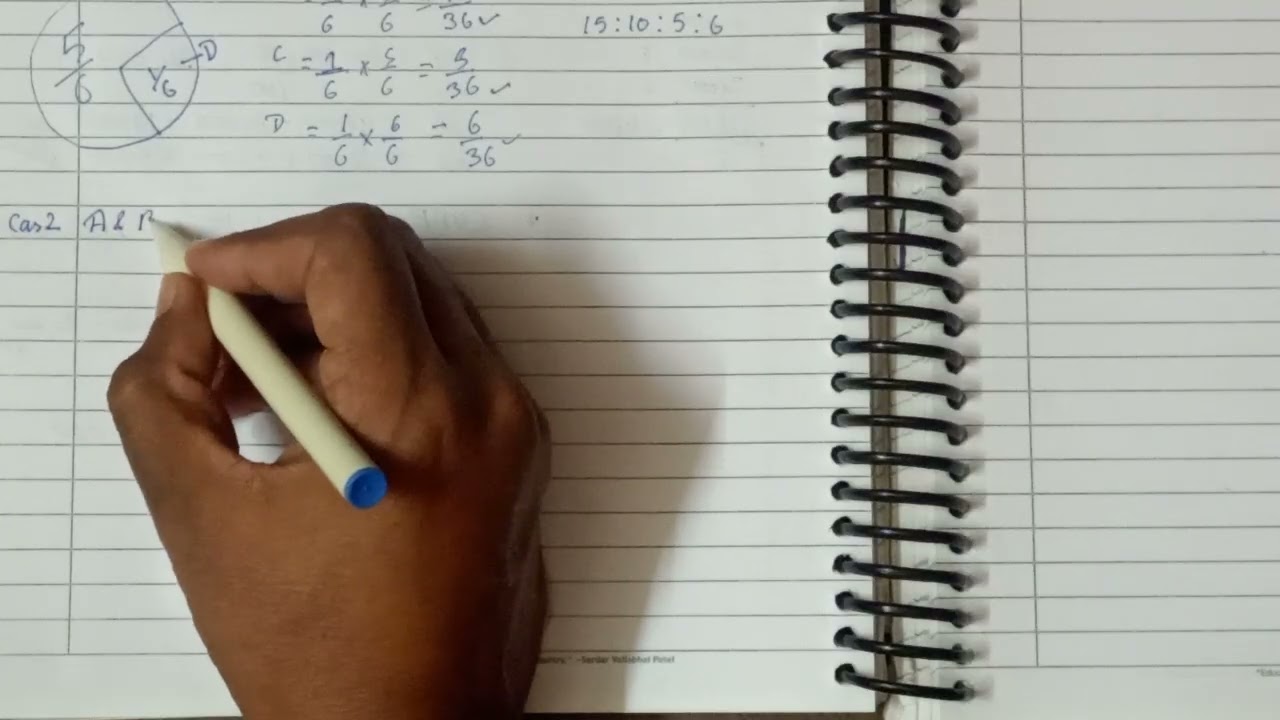 6 × 6 = 36 ✓
15:10:5:6
5/6
1/6
D
C = 1/6 × 5/6 = 5/36 ✓
D = 1/6 × 6/6 = 6/36 ✓
Cas2 A & B
-Sardar Vallabhai Patel